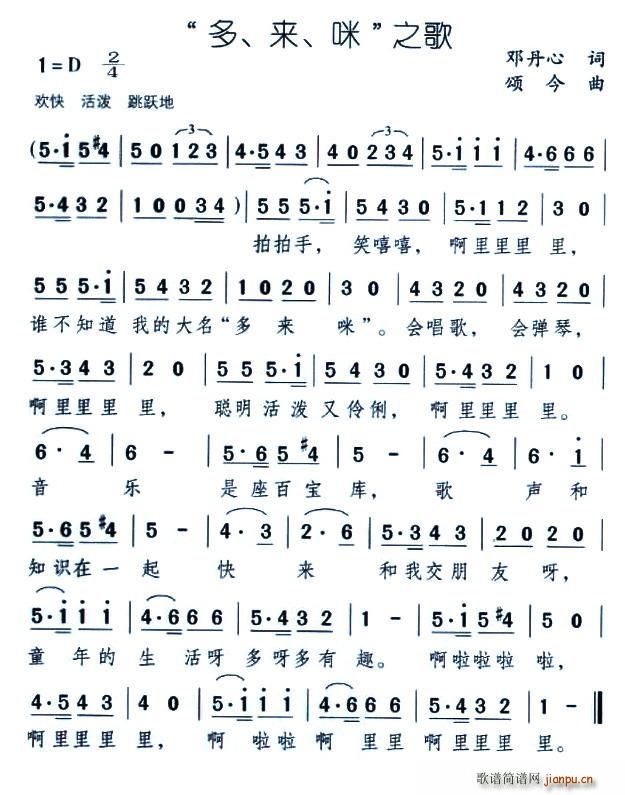 “多、来、咪”之歌
1=D 2/4
邓丹心 词
颂今 曲
欢快 活泼 跳跃地
(5·i 5 #4 | 5 0 1 2 3 | 4·5 4 3 | 4 0 2 3 4 | 5·i i i | 4·6 6 6 |
5·4 3 2 | 1 0 0 3 4) | 5 5 5·i | 5 4 3 0 | 5·1 1 2 | 3 0 |
拍拍手, 笑嘻嘻, 啊里里里 里,
5 5 5·i | 5 4 3 2 | 1 0 2 0 | 3 0 | 4 3 2 0 | 4 3 2 0 |
谁不知道 我的大名“多 来 咪”。会唱歌, 会弹琴,
5·3 4 3 | 2 0 | 5 5 5·i | 5 4 3 0 | 5·4 3 2 | 1 0 |
啊里里里 里, 聪明活泼又伶俐, 啊里里里 里。
6·4 | 6 - | 5·6 5 #4 | 5 - | 6·4 | 6·i |
音 乐 是座百宝 库, 歌 声和
5·6 5 #4 | 5 - | 4·3 | 2·6 | 5·3 4 3 | 2 0 2 0 |
知识在一 起 快 来 和我交朋 友 呀,
5·i i i | 4·6 6 6 | 5·4 3 2 | 1 - | 5·i 5 #4 | 5 0 |
童 年的 生 活呀 多呀多有 趣。 啊啦啦啦 啦,
4·5 4 3 | 4 0 | 5·i i i | 4·6 6 6 | 5·4 5 2 | 1 - ‖
啊里里里 里, 啊 啦啦 啊 里里 啊里里里 里。
歌谱简谱网
jianpu.cn